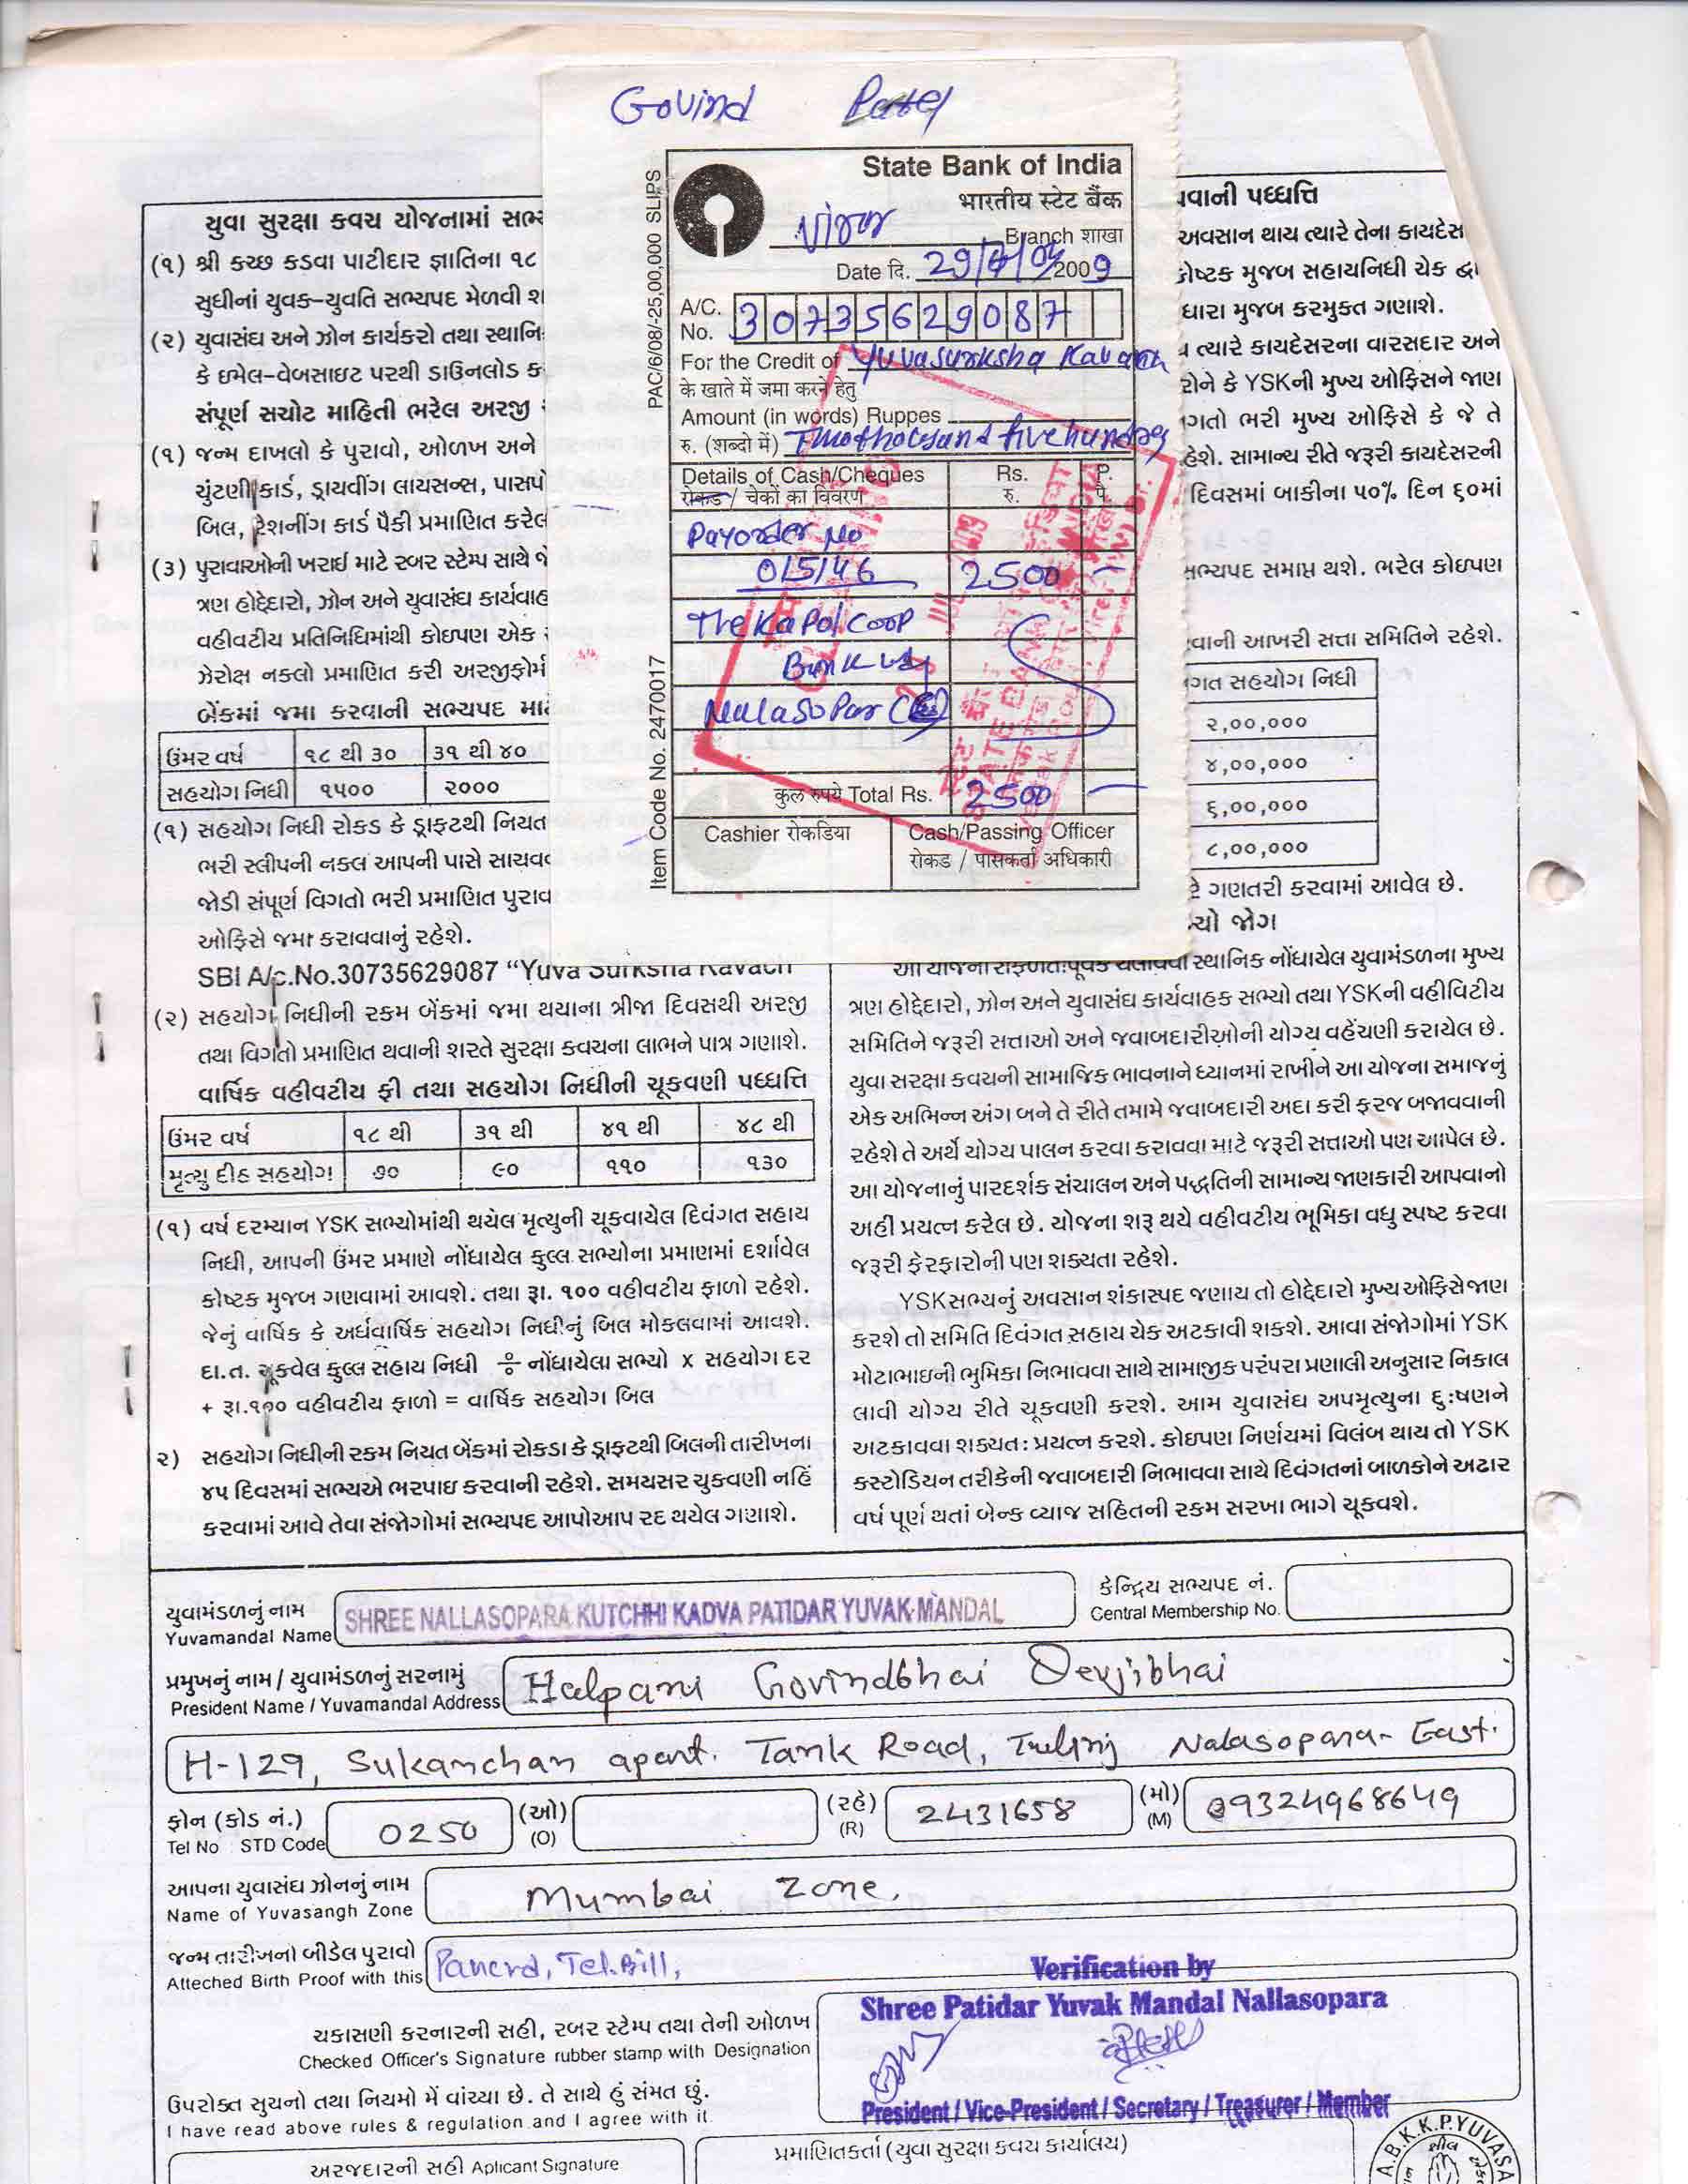 Govind Patel
State Bank of India
भारतीय स्टेट बैंक
Virar
Branch शाखा
Date दि. 29/ /2009
A/C. No. 30735629087
For the Credit of Yuvasurksha Kavach
के खाते में जमा करने हेतु
Amount (in words) Ruppes
रु. (शब्दो में)
Details of Cash/Cheques Rs. P.
रोकड / चेकों का विवरण रु. पै.
Payorder No
015146 2500
The Kapol Coop
Bank Ltd
Nalasopar (E)
कुल रुपये Total Rs. 2500
Cashier रोकडिया Cash/Passing Officer
रोकड / पासकर्ता अधिकारी
PAC/6/08/-25,00,000 SLIPS
Item Code No. 2470017
યુવા સુરક્ષા કવચ યોજનામાં સભ્ય
(૧) શ્રી કચ્છ કડવા પાટીદાર જ્ઞાતિના ૧૮
સુધીનાં યુવક-યુવતિ સભ્યપદ મેળવી શ
(૨) યુવાસંઘ અને ઝોન કાર્યકરો તથા સ્થાનિ
કે ઇમેલ-વેબસાઇટ પરથી ડાઉનલોડ ક
સંપૂર્ણ સચોટ માહિતી ભરેલ અરજી
(૧) જન્મ દાખલો કે પુરાવો, ઓળખ અને
ચુંટણી કાર્ડ, ડ્રાયવીંગ લાયસન્સ, પાસપો
બિલ, રેશનીંગ કાર્ડ પૈકી પ્રમાણિત કરેલ
(૩) પુરાવાઓની ખરાઈ માટે રબર સ્ટેમ્પ સાથે જે
ત્રણ હોદ્દેદારો, ઝોન અને યુવાસંઘ કાર્યવાહ
વહીવટીય પ્રતિનિધિમાંથી કોઇપણ એક
ઝેરોક્ષ નકલો પ્રમાણિત કરી અરજીફોર્મ
બેંકમાં જમા કરવાની સભ્યપદ માટે
ઉંમર વર્ષ ૧૮ થી ૩૦ ૩૧ થી ૪૦
સહયોગ નિધી ૧૫૦૦ ૨૦૦૦
(૧) સહયોગ નિધી રોકડ કે ડ્રાફટથી નિયત
ભરી સ્લીપની નકલ આપની પાસે સાચવ
જોડી સંપૂર્ણ વિગતો ભરી પ્રમાણિત પુરાવ
ઓફિસે જમા કરાવવાનું રહેશે.
SBI A/c.No.30735629087 “Yuva Surksha Kavach
(૨) સહયોગ નિધીની રકમ બેંકમાં જમા થયાના ત્રીજા દિવસથી અરજી
તથા વિગતો પ્રમાણિત થવાની શરતે સુરક્ષા કવચના લાભને પાત્ર ગણાશે.
વાર્ષિક વહીવટીય ફી તથા સહયોગ નિધીની ચૂકવણી પધ્ધત્તિ
ઉંમર વર્ષ ૧૮ થી ૩૧ થી ૪૧ થી ૪૮ થી
મૃત્યુ દીઠ સહયોગ ૭૦ ૯૦ ૧૧૦ ૧૩૦
(૧) વર્ષ દરમ્યાન YSK સભ્યોમાંથી થયેલ મૃત્યુની ચૂકવાયેલ દિવંગત સહાય
નિધી, આપની ઉંમર પ્રમાણે નોંધાયેલ કુલ્લ સભ્યોના પ્રમાણમાં દર્શાવેલ
કોષ્ટક મુજબ ગણવામાં આવશે. તથા રૂા. ૧૦૦ વહીવટીય ફાળો રહેશે.
જેનું વાર્ષિક કે અર્ધવાર્ષિક સહયોગ નિધીનું બિલ મોકલવામાં આવશે.
દા.ત. ચૂકવેલ કુલ્લ સહાય નિધી ÷ નોંધાયેલા સભ્યો X સહયોગ દર
+ રૂા.૧૦૦ વહીવટીય ફાળો = વાર્ષિક સહયોગ બિલ
૨) સહયોગ નિધીની રકમ નિયત બેંકમાં રોકડા કે ડ્રાફટથી બિલની તારીખના
૪૫ દિવસમાં સભ્યએ ભરપાઇ કરવાની રહેશે. સમયસર ચુકવણી નહિં
કરવામાં આવે તેવા સંજોગોમાં સભ્યપદ આપોઆપ રદ થયેલ ગણાશે.
વાની પધ્ધત્તિ
અવસાન થાય ત્યારે તેના કાયદેસ
કોષ્ટક મુજબ સહાયનિધી ચેક દ્વા
ધારા મુજબ કરમુક્ત ગણાશે.
ત્યારે કાયદેસરના વારસદાર અને
રોને કે YSKની મુખ્ય ઓફિસને જાણ
ગતો ભરી મુખ્ય ઓફિસે કે જે તે
હેશે. સામાન્ય રીતે જરૂરી કાયદેસરની
દિવસમાં બાકીના ૫૦% દિન ૬૦માં
સભ્યપદ સમાપ્ત થશે. ભરેલ કોઇપણ
વાની આખરી સત્તા સમિતિને રહેશે.
ગત સહયોગ નિધી
૨,૦૦,૦૦૦
૪,૦૦,૦૦૦
૬,૦૦,૦૦૦
૮,૦૦,૦૦૦
ગણતરી કરવામાં આવેલ છે.
યો જોગ
આ યોજના સફળતાપૂર્વક ચલાવવા સ્થાનિક નોંધાયેલ યુવામંડળના મુખ્ય
ત્રણ હોદ્દેદારો, ઝોન અને યુવાસંઘ કાર્યવાહક સભ્યો તથા YSKની વહીવિટીય
સમિતિને જરૂરી સત્તાઓ અને જવાબદારીઓની યોગ્ય વહેંચણી કરાયેલ છે.
યુવા સરક્ષા કવચની સામાજિક ભાવનાને ધ્યાનમાં રાખીને આ યોજના સમાજનું
એક અભિન્ન અંગ બને તે રીતે તમામે જવાબદારી અદા કરી ફરજ બજાવવાની
રહેશે તે અર્થે યોગ્ય પાલન કરવા કરાવવા માટે જરૂરી સત્તાઓ પણ આપેલ છે.
આ યોજનાનું પારદર્શક સંચાલન અને પદ્ધતિની સામાન્ય જાણકારી આપવાનો
અહીં પ્રયત્ન કરેલ છે. યોજના શરૂ થયે વહીવટીય ભૂમિકા વધુ સ્પષ્ટ કરવા
જરૂરી ફેરફારોની પણ શક્યતા રહેશે.
YSKસભ્યનું અવસાન શંકાસ્પદ જણાય તો હોદ્દેદારો મુખ્ય ઓફિસે જાણ
કરશે તો સમિતિ દિવંગત સહાય ચેક અટકાવી શકશે. આવા સંજોગોમાં YSK
મોટાભાઇની ભુમિકા નિભાવવા સાથે સામાજીક પરંપરા પ્રણાલી અનુસાર નિકાલ
લાવી યોગ્ય રીતે ચૂકવણી કરશે. આમ યુવાસંઘ અપમૃત્યુના દુઃષણને
અટકાવવા શક્યતઃ પ્રયત્ન કરશે. કોઇપણ નિર્ણયમાં વિલંબ થાય તો YSK
કસ્ટોડિયન તરીકેની જવાબદારી નિભાવવા સાથે દિવંગતનાં બાળકોને અઢાર
વર્ષ પૂર્ણ થતાં બેન્ક વ્યાજ સહિતની રકમ સરખા ભાગે ચૂકવશે.
યુવામંડળનું નામ SHREE NALLASOPARA KUTCHHI KADVA PATIDAR YUVAK MANDAL કેન્દ્રિય સભ્યપદ નં.
Yuvamandal Name Central Membership No.
પ્રમુખનું નામ / યુવામંડળનું સરનામું Halpani Govindbhai Devjibhai
President Name / Yuvamandal Address
H-129, Sukanchan apart. Tank Road, Tulinj Nalasopara- East.
ફોન (કોડ નં.) 0250 (ઓ) (રહે) 2431658 (મો) 09324968649
Tel No STD Code (O) (R) (M)
આપના યુવાસંઘ ઝોનનું નામ Mumbai Zone.
Name of Yuvasangh Zone
જન્મ તારીખનો બીડેલ પુરાવો Pancrd, Tel.Bill,
Atteched Birth Proof with this
Verification by
Shree Patidar Yuvak Mandal Nallasopara
ચકાસણી કરનારની સહી, રબર સ્ટેમ્પ તથા તેની ઓળખ
Checked Officer's Signature rubber stamp with Designation
ઉપરોક્ત સુચનો તથા નિયમો મેં વાંચ્યા છે. તે સાથે હું સંમત છું.
I have read above rules & regulation and I agree with it.
President / Vice-President / Secretary / Treasurer / Member
અરજદારની સહી Aplicant Signature
પ્રમાણિતકર્તા (યુવા સુરક્ષા કવચ કાર્યાલય)
A.B.K.K.P.YUVASA